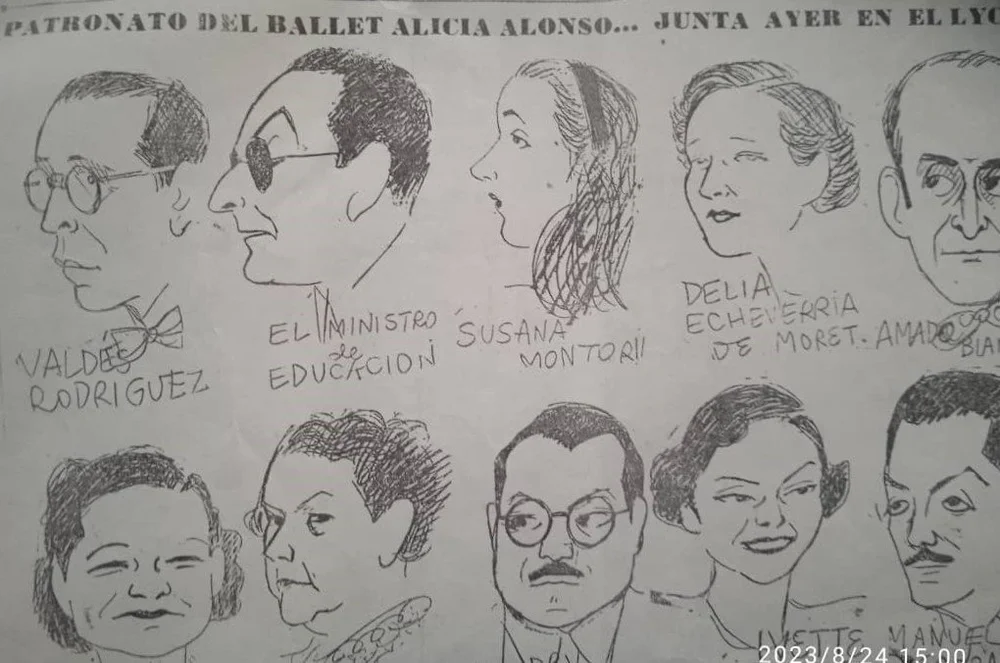 PATRONATO DEL BALLET ALICIA ALONSO... JUNTA AYER EN EL LYC
VALDÉS
RODRIGUEZ
EL MINISTRO
de
EDUCACION
SUSANA
MONTORI
DELIA
ECHEVERRIA
DE MORET.
AMADO
BLAN
IVETTE
MANUEL
2023/8/24 15:00